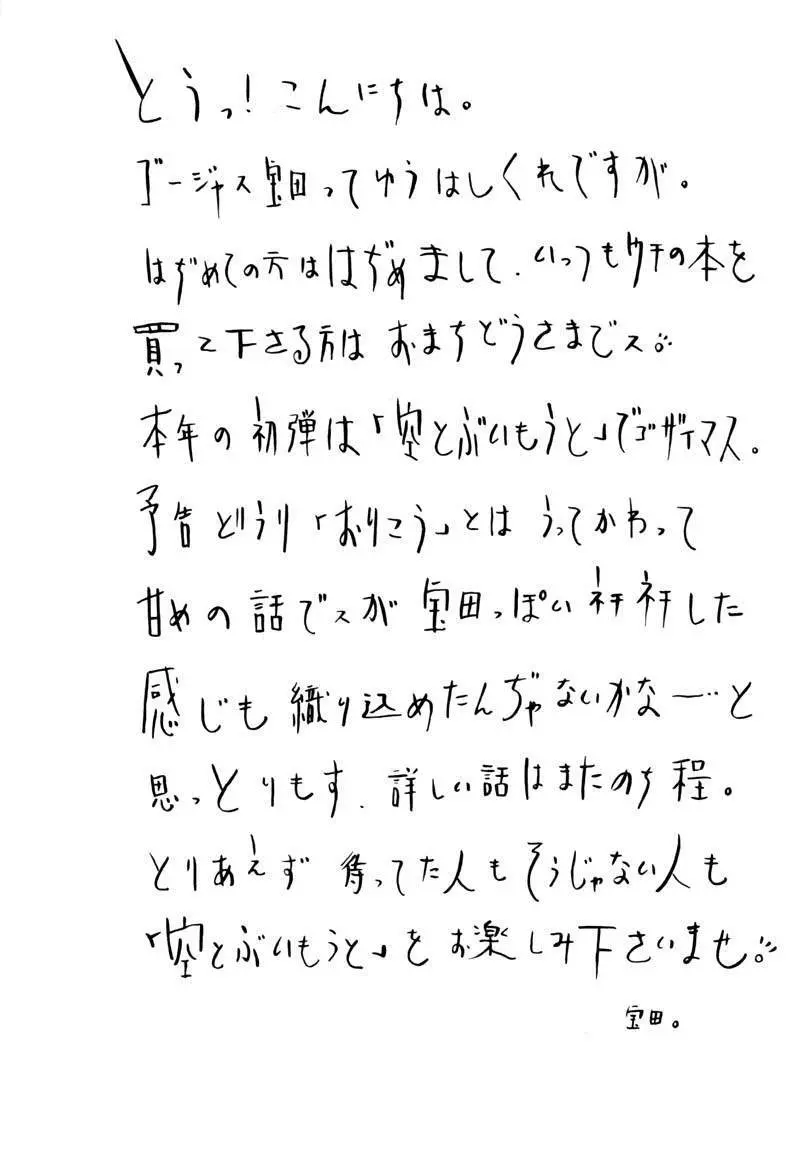 とうっ!こんにちは。
ゴージャス宝田ってゆうはしくれですが。
はぢめての方ははぢめまして、いっつもウチの本を
買って下さる方はおまちどうさまでス。
本年の初弾は「空とぶいもうと」でゴザイマス。
予告どうり「おりこう」とはうってかわって
甘めの話でスが宝田っぽいネチネチした
感じも織り込めたんぢゃないかな一…と
思っとりもす、詳しい話はまたのち程。
とりあえず待ってた人もそうじゃない人も
「空とぶいもうと」をお楽しみ下さいませ。
宝田。